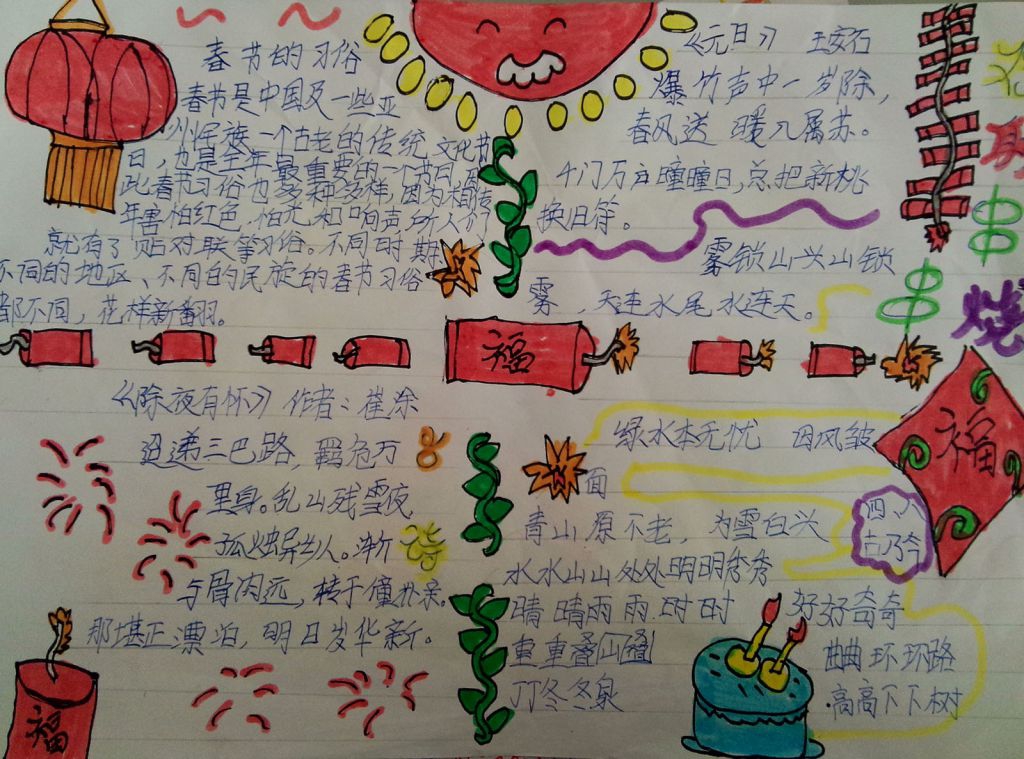 春节的习俗
春节是中国及一些亚
州民族一个古老的传统文化节
日，也是全年最重要的一个节日，
此春节习俗也多种多样，因为相传
年害怕红色、怕光和响声所人们
就有了贴对联等习俗。不同时期
不同的地区、不同的民族的春节习俗
都不同，花样新翻。
《元旦》 王安石
爆竹声中一岁除，
春风送暖入屠苏。
千门万户曈曈日，总把新桃
换旧符。
雾锁山头山锁
雾，天连水尾水连天。
福
《除夜有怀》作者：崔涂
迢递三巴路，羁危万
里身。乱山残雪夜
孤烛异人。渐
与骨肉远，转于僮仆亲。
那堪正漂泊，明日岁华新。
福
绿水本无忧 因风皱
面
青山原不老，为雪白头
水水山山处处明明秀秀
晴晴雨雨时时 好好奇奇
重重叠山叠
曲曲环环路
丁冬冬泉
高高下下树
福
烧